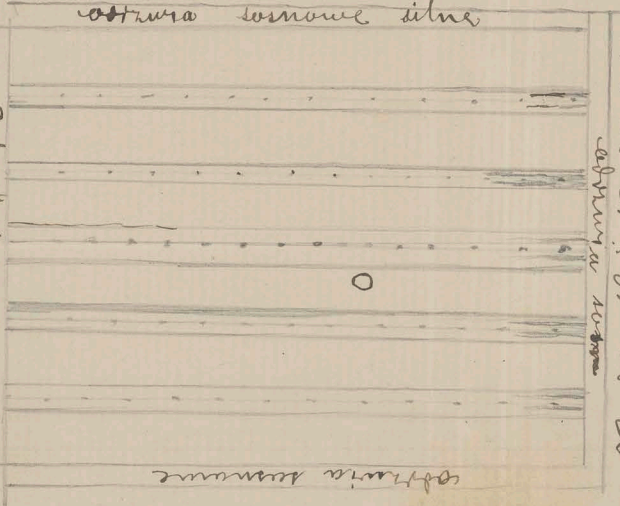 odrzwia sosnowe silne
odrzwia sosn
odrzwia sosnowe